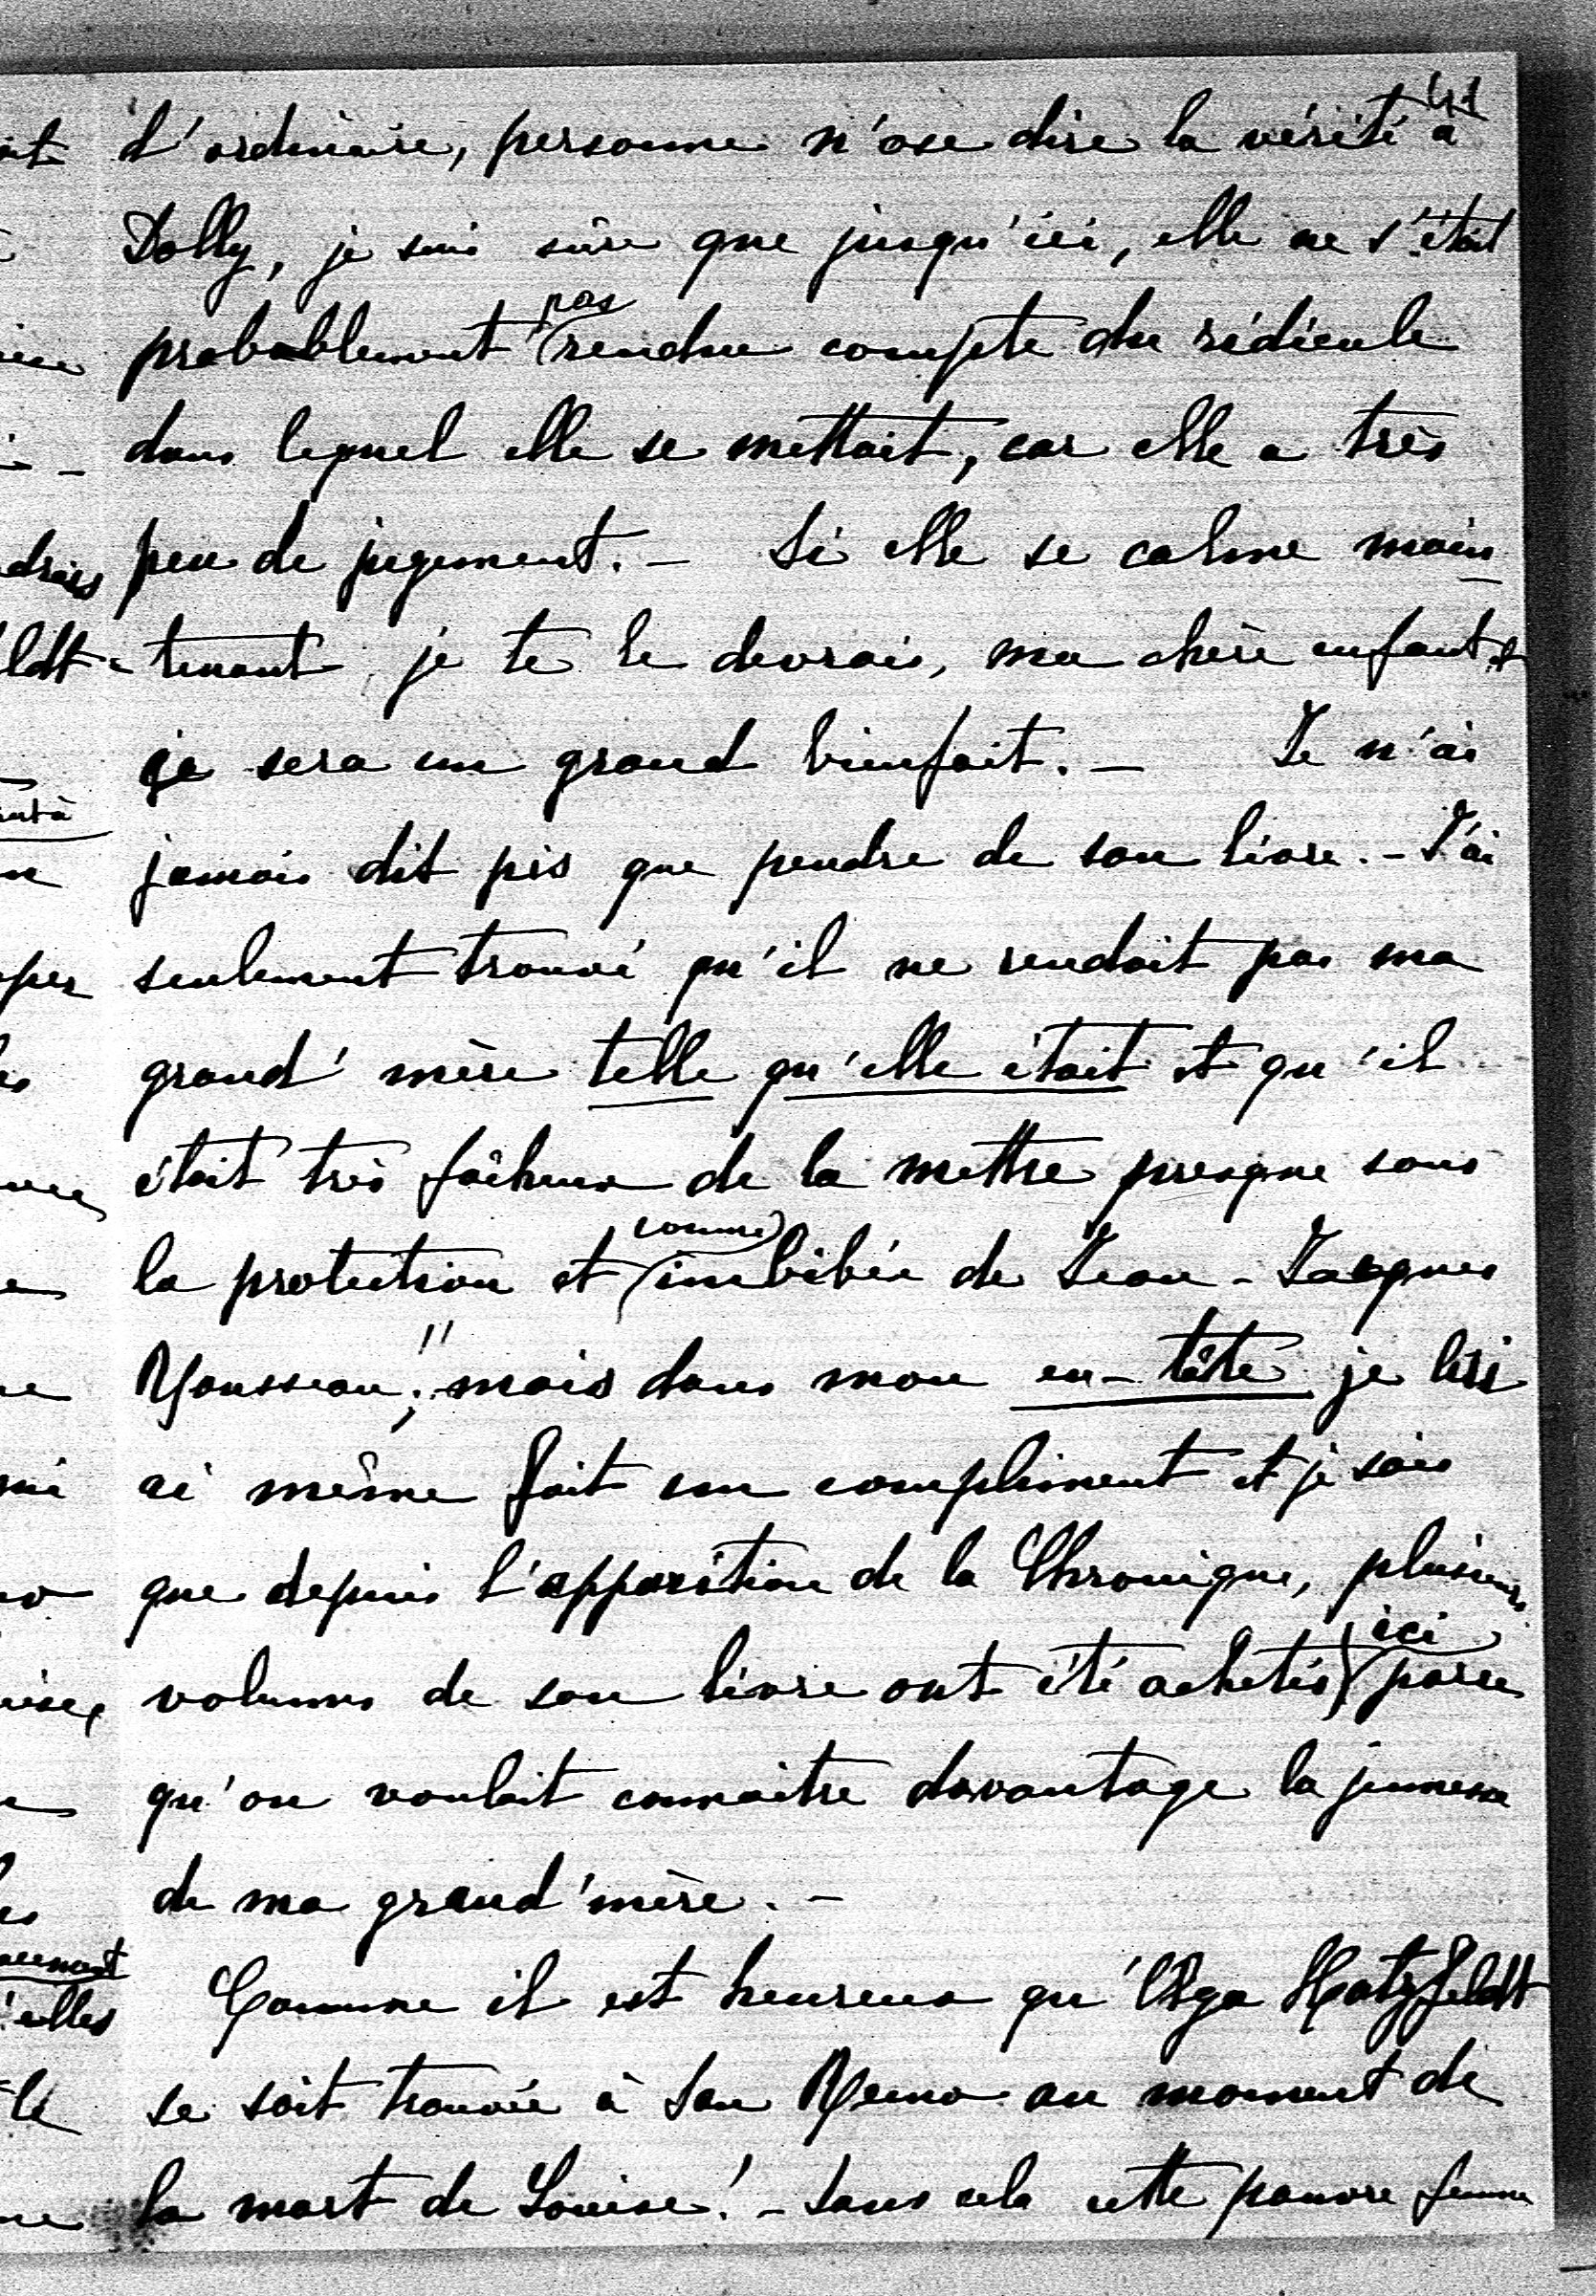 41
d'ordinaire, personne n'ose dire la vérité à
Dolly, je suis sûre que jusqu'ici, elle ne s'était
pas
probablement rendue compte du ridicule
dans lequel elle se mettait, car elle a très
peu de jugement. – Si elle se calme main-
tenant je te le devrais, ma chère enfant et
ça sera un grand bienfait. – Je n'ai
jamais dit pis que pendre de son livre. – J'ai
seulement trouvé qu'il ne rendait pas ma
grand'mère telle qu'elle était et qu'il
était très fâcheux de la mettre presque sous
la protection et comme imbibée de Jean-Jacques
Rousseau!! ; mais dans mon en-tête je lui
ai même fait un compliment et je sais
que depuis l'apparition de la Chronique, plusieurs
volumes de son livre ont été achetés ici parce
qu'on voulait connaitre davantage la jeunesse
de ma grand'mère. –
Comme il est heureux qu'Olga Hatzfeldt
se soit trouvée à San Remo au moment de
la mort de Louise! – Sans cela cette pauvre femme